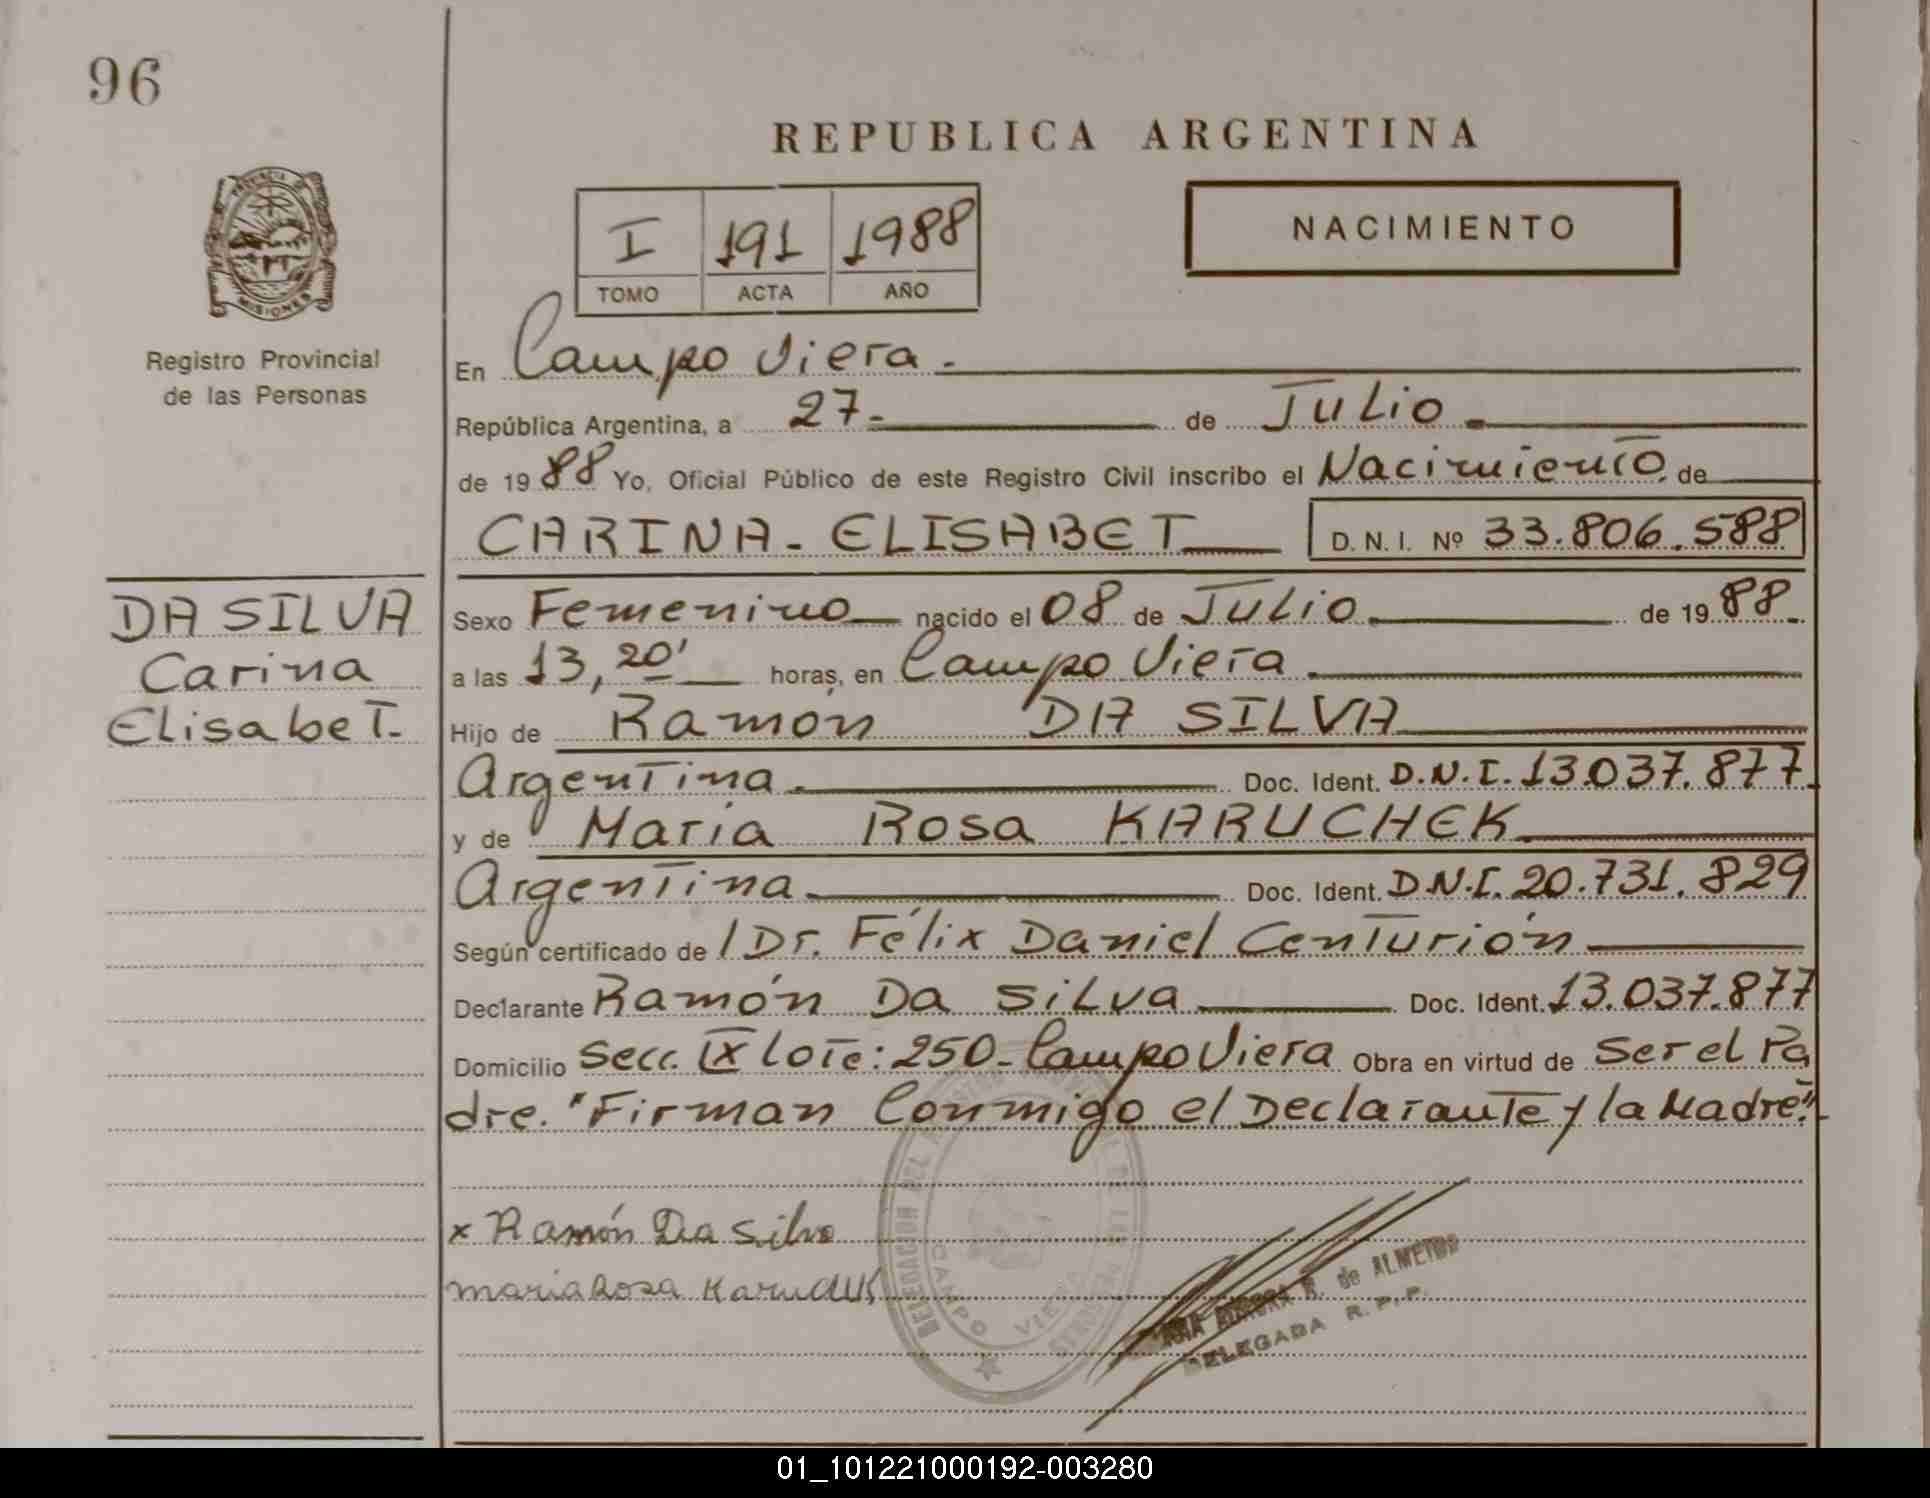 96
REPUBLICA ARGENTINA
PROVINCIA DE
MISIONES
Registro Provincial
de las Personas
I 191 1988
TOMO ACTA AÑO
NACIMIENTO
En Campo Viera.
República Argentina, a 27- de Julio.
de 1988 Yo, Oficial Público de este Registro Civil inscribo el Nacimiento. de
CARINA- ELISABET D. N. I. Nº 33.806.588
DA SILVA
Carina
Elisabet.
Sexo Femenino nacido el 08 de Julio. de 1988.
a las 13,20' horas, en Campo Viera.
Hijo de Ramón DA SILVA
Argentina. Doc. Ident. D.N.I. 13.037.877.
y de Maria Rosa KARUCHEK.
Argentina Doc. Ident. D.N.I. 20.731.829
Según certificado de / Dr. Félix Daniel Centurión
Declarante Ramón Da Silva Doc. Ident. 13.037.877
Domicilio Secc. IX Lote: 250- Campo Viera Obra en virtud de Ser el Pa
dre. "Firman Conmigo el Declarante y la Madre".
x Ramón Da Silva
maria Rosa Karuchek
DELEGACION DEL REGISTRO PROVINCIAL DE LAS PERSONAS
CAMPO VIERA
R. de ALMEIDA
DELEGADA R. P. P.
01_101221000192-003280